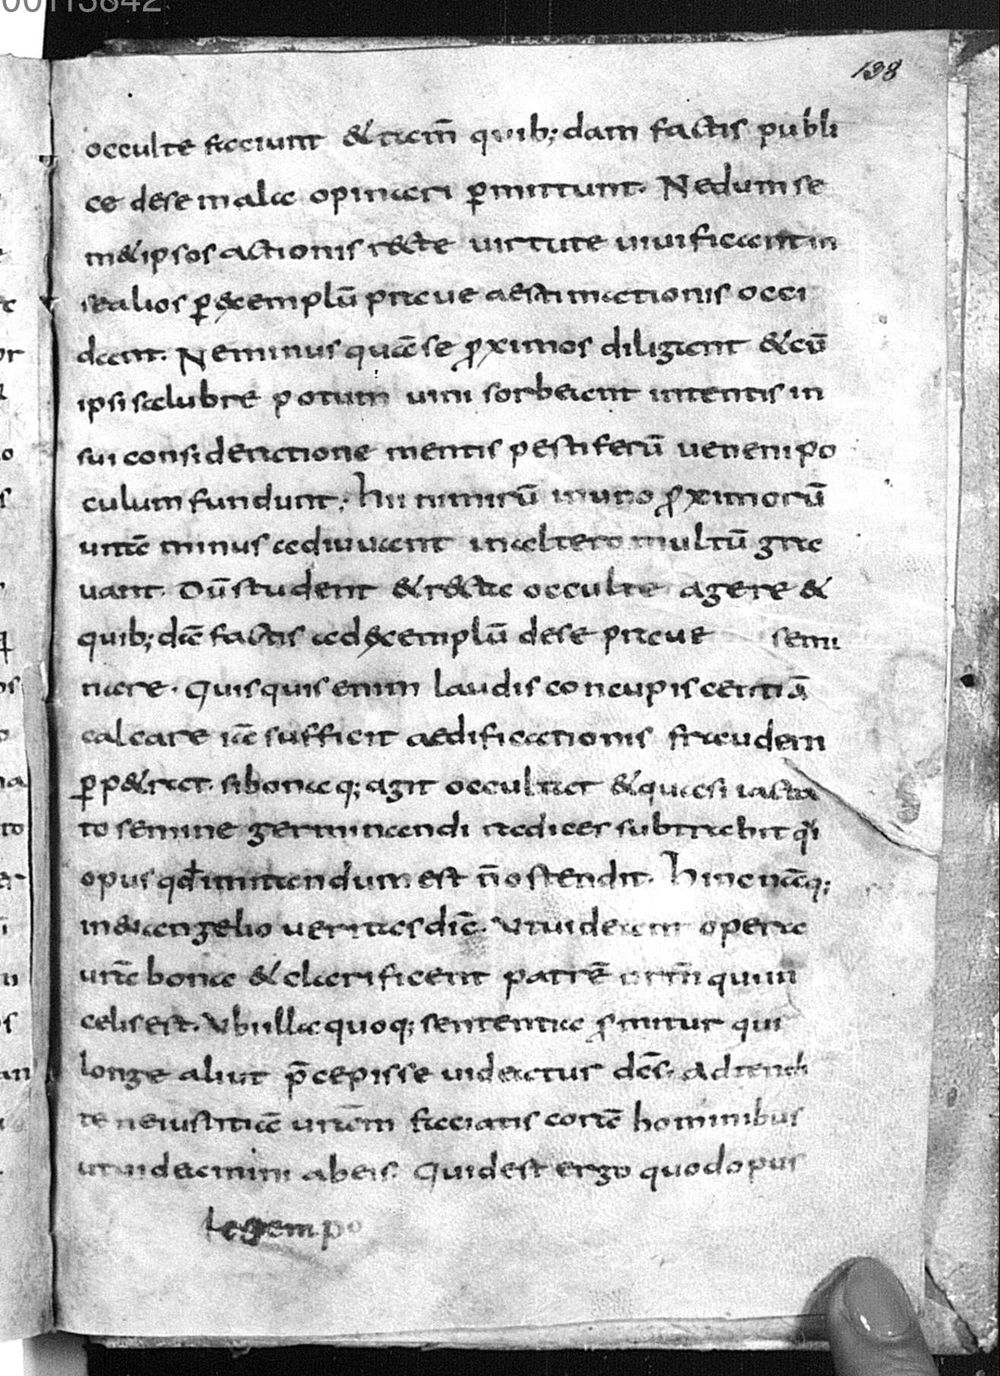 00113842
198
occulte faciunt & tam̄ quib; dam factis publi
ce dese mala opinari p̱mittunt. Nedum se
m&ipsos actionis r&cte uirtute uiuificant in
se alios p̱ &cemplū praue aestimationis occi
dant. Neminus quā se ꝓximos diligant & cū
ipsi salubre potum uini sorbeant intentis in
sui consideratione mentis pestiferū ueneni po
culum fundunt; hii nimirū in uno ꝓximorū
uitā minus adiuuant in altero multū gra
uant. Dū student & r&cta occulte agere &
quib; dā factis ad &cemplū dese praue semi
nare. Quisquis enim laudis concupiscentiā
calcare iā sufficit aedificationis fraudem
p̱p&rat. si bona q; agit occultat & quasi iacta
to semine germinandi radices subtrahit q̄i
opus qđ imitandum est n̄ ostendit. Hinc nāq;
in euangelio ueritas dič. Vt uideant opera
urā bona & clarificent patrē urm̄ qui in
celis est. Vbi illa quoq; sententia ꝓmitur qui
longe aliut p̄cepisse uideatur dc̄s. Adtendi
te ne iustitiā uram̄ faciatis corā hominibus
ut uideamini ab eis. Quid est ergo quod opus